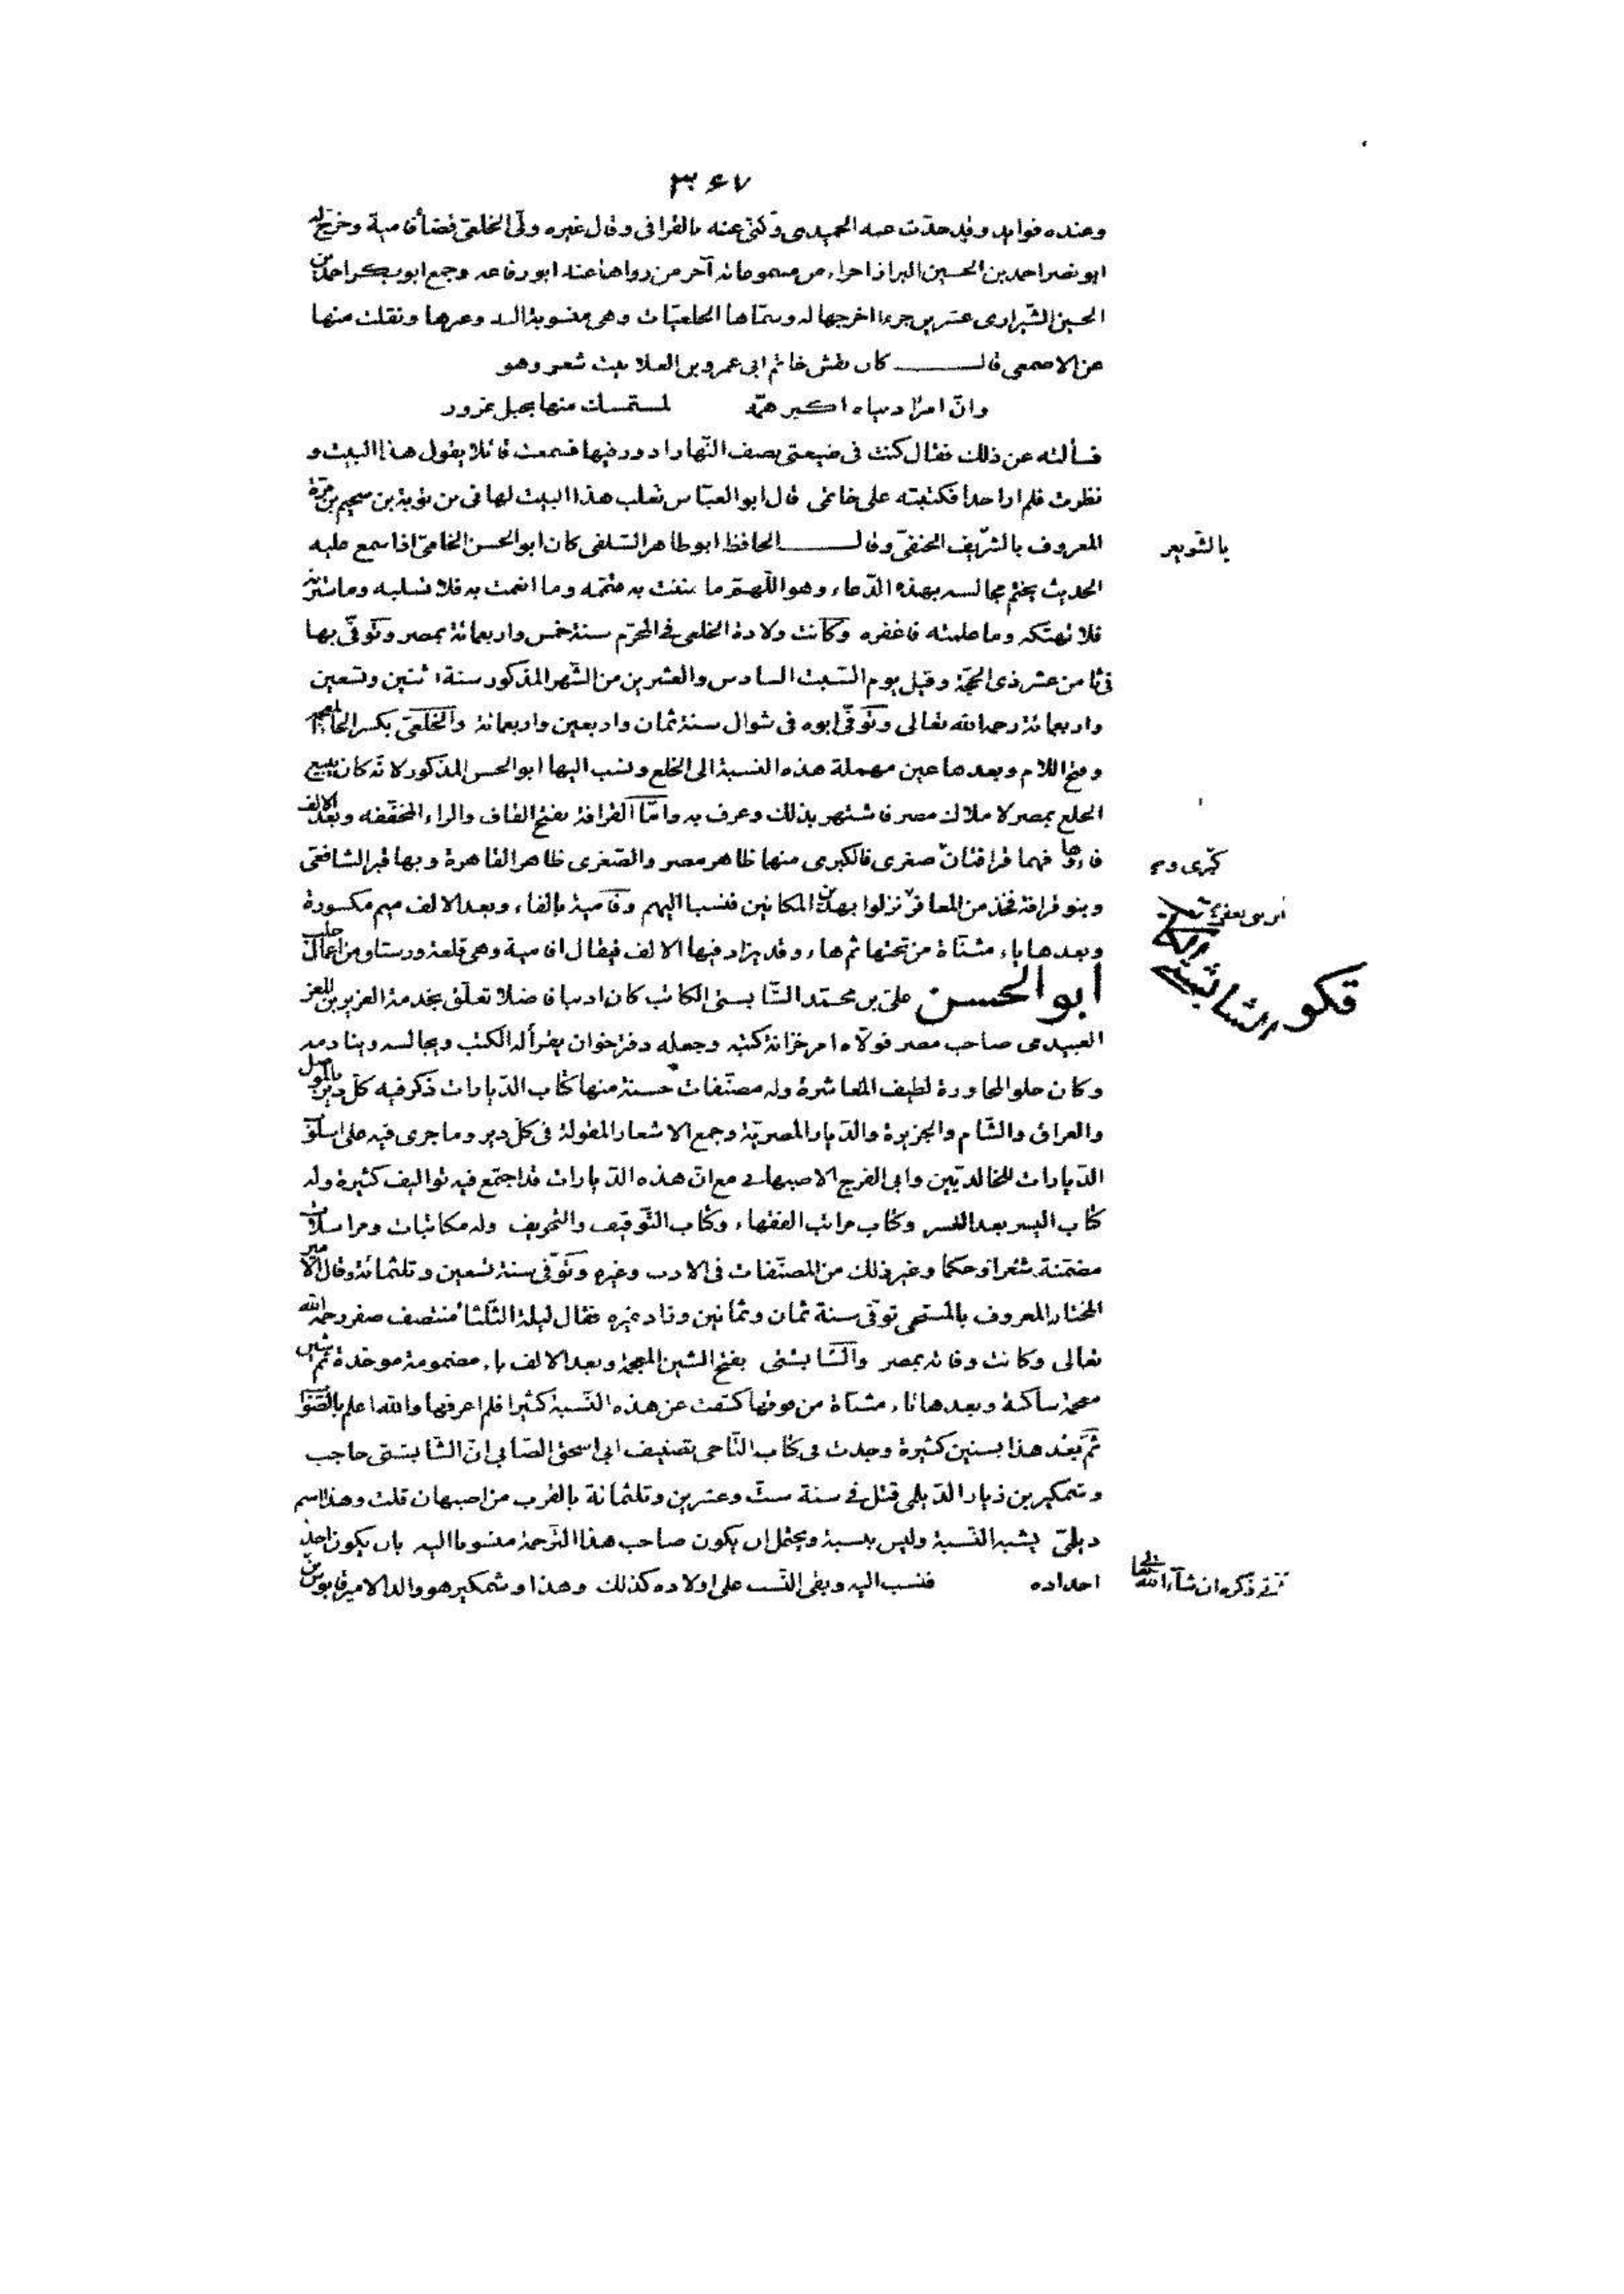 ٣٦٧
وعنده فوايد وقد حدّث عنه الحميدى وكنّى عنه بالقرافى وقال غيره ولّى الخلعىّ قضاء فامية وخرّج له
ابو نصر احمد بن الحسين البزاز اجزاء من مسموعاته آخر من رواها عنه ابو رفاعه وجمع ابو بكر احمد بن
الحسن الشّيرازى عشرين جزءا اخرجها له وسمّاها الخلعيّات وهى منسوبة اليه وغيرها ونقلت منها
عن الاصمعى قال كان نقش خاتم ابى عمرو بن العلا بيت شعر وهو
وانّ امرًا دنياه اكبر همّه لمستمسك منها بحبل غرور
فسألته عن ذلك فقال كنت فى ضيعتى نصف النّهار ادور فيها فسمعت قائلا يقول هذا البيت و
نظرت فلم ار احدا فكتبته على خاتمى قال ابو العبّاس ثعلب هذا البيت لهانى بن توبة بن سحيم بن مرّة
المعروف بالشّريف الحنفىّ وقال الحافظ ابو طاهر السّلفى كان ابو الحسن الخلعىّ اذا سمع عليه
بالشّويعر
الحديث يختم مجالسه بهذه الدّعاء وهو اللّهمّ ما مننت به فتمّمه وما انعمت به فلا تسلبه وما سترته
فلا تهتكه وما علمته فاغفره وكانت ولادة الخلعى فى المحرّم سنة خمس واربعمائة بمصر وتوفّى بها
فى ثامن عشر ذى الحجّة وقيل يوم السّبت السادس والعشرين من الشّهر المذكور سنة اثنتين وتسعين
واربعمائة رحمه الله تعالى وتوفّى ابوه فى شوال سنة ثمان واربعين واربعمائة والخلعىّ بكسر الخا المعجمة
وفتح اللام وبعدها عين مهملة هذه النسبة الى الخلع ونسب اليها ابو الحسن المذكور لانّه كان يبيع
الخلع بمصر لاملاك مصر فاشتهر بذلك وعرف به وامّا القرافة بفتح القاف والراء المخفّفه وبعد الالف
فاءوها فهما قرافتان صغرى فالكبرى منها ظاهر مصر والصّغرى ظاهر القاهرة وبها قبر الشافعى
كبرى و
وبنو قرافة فخذ من المعافر نزلوا بهذين المكانين فنسبا اليهم وفامية بالفاء وبعد الالف ميم مكسورة
وبعدها ياء مثنّاة من تحتها ثم هاء وقد يزاد فيها الالف فيقال افامية وهى قلعة ورستاق من اعمال حلب
ابو الحسن علىّ بن محمّد الشّابستى الكاتب كان اديبا فاضلا تعلّق بخدمة العزيز بن المعز
العبيدى صاحب مصر فولّاه امر خزانة كتبه وجعله دفتر خوان يقرأ له الكتب ويجالسه وينادمه
وكان حلو المحاورة لطيف المعاشرة وله مصنّفات حسنة منها كتاب الدّيارات ذكر فيه كلّ دير بالموصل
والعراق والشّام والجزيرة والدّيار المصريّة وجمع الاشعار المقولة فى كلّ دير وما جرى فيه على اسلوب
الدّيارات للخالديّين وابى الفرج الاصبهانى مع انّ هذه الدّيارات قد اجتمع فيه تواليف كثيرة وله
كتاب اليسر بعد العسر وكتاب مراتب الفقهاء وكتاب التّوقيف والتخويف وله مكاتبات ومراسلات
مضمّنة شعرا وحكما وغير ذلك من المصنّفات فى الادب وغيره وتوفّى سنة تسعين وثلثمائة وقال الامير
المختار المعروف بالمسبّحى توفّى سنة ثمان وثمانين وزاد غيره فقال ليلة الثّلثاء منتصف صفر رحمه الله
تعالى وكانت وفاته بمصر والشّابشتى بفتح الشين المعجمة وبعد الالف باء مضمومة موحّدة ثم شين
معجمة ساكنة وبعدها تاء مثنّاة من فوقها كشفت عن هذه النّسبة كثيرا فلم اعرفها والله اعلم بالصّواب
ثمّ بعد هذا بسنين كثيرة وجدت فى كتاب التّاجى تصنيف ابى اسحق الصّابى انّ الشّابشتى حاجب
وشمكير بن زيار الدّيلمى قتل فى سنة ستّ وعشرين وثلثمائة بالقرب من اصبهان قلت وهذا اسم
ديلمىّ يشبه النّسبة وليس بنسبة ويحتمل ان يكون صاحب هذا التّرجمة منسوبا اليه بان يكون احد
اجداده فنسب اليه وبقى النّسب على اولاده كذلك وهذا وشمكير هو والد الامير قابوس
ذكره ان شاء الله تعالى